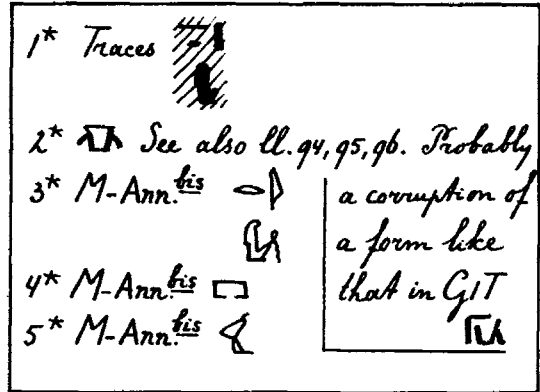 1* Traces
2* See also ll. 94, 95, 96. Probably
a corruption of
a form like
that in G1T
3* M-Ann.bis
4* M-Ann.bis
5* M-Ann.bis